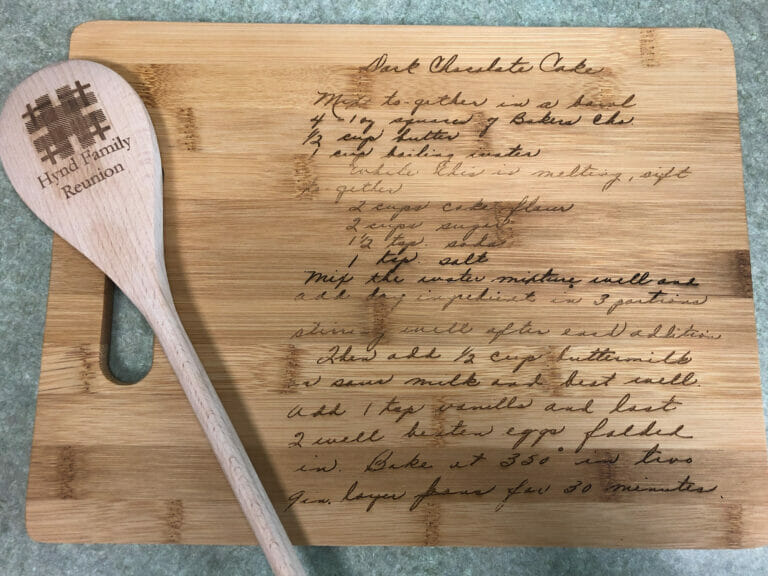 Hynd Family
Reunion
Dark Chocolate Cake
Mix to-gether in a bowl
4 - 1 oz square of Bakers Cho.
1/2 cup butter
1 cup boiling water
While this is melting, sift
to-gether
2 cups cake flour
2 cups sugar
1 1/2 tsp. soda
1 tsp. salt
Mix the water mixture well and
add dry ingredient in 3 portions
stirring well after each addition
Then add 1/2 cup buttermilk
or sour milk and beat well.
Add 1 tsp vanilla and last
2 well beaten eggs folded
in. Bake at 350° in two
9 in. layer pans for 30 minutes.